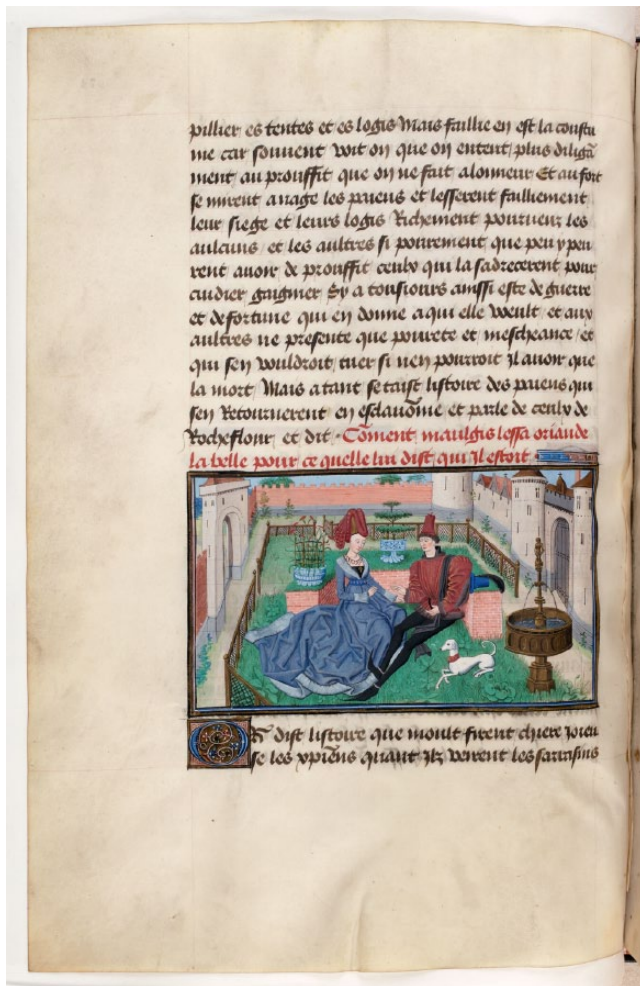 pillier es tentes et es logis Mais faillie en est la coustu
me car souvent voit on que on entent plus diligā
ment au prouffit que on ne fait alonneur Et au fort
se mirent a nage les paiens et lesserent failliement
leur siege et leurs logis Richement pourveuz les
aulcuns et les aultres si pourement que peu y peu
rent avoir de prouffit ceulx qui la sadrecerent pour
cuidier gaignier Sy a tousiours ainssi este de guerre
et de fortune qui en donne a qui elle veult et aux
aultres ne presente que pourete et mescheance et
qui sen vouldroit tuer si nen pourroit Il avoir que
la mort Mais atant se taist listoire des paiens qui
sen Retournerent en esclavōnie et parle de ceulx de
Rocheflour et dit Cōment maulgis lessa oriande
la belle pour ce quelle lui dist qui Il estoit
Or dist listoire que moult firent chiere Joieu
se les xpiēns quant Ilz veirent les sarrasins